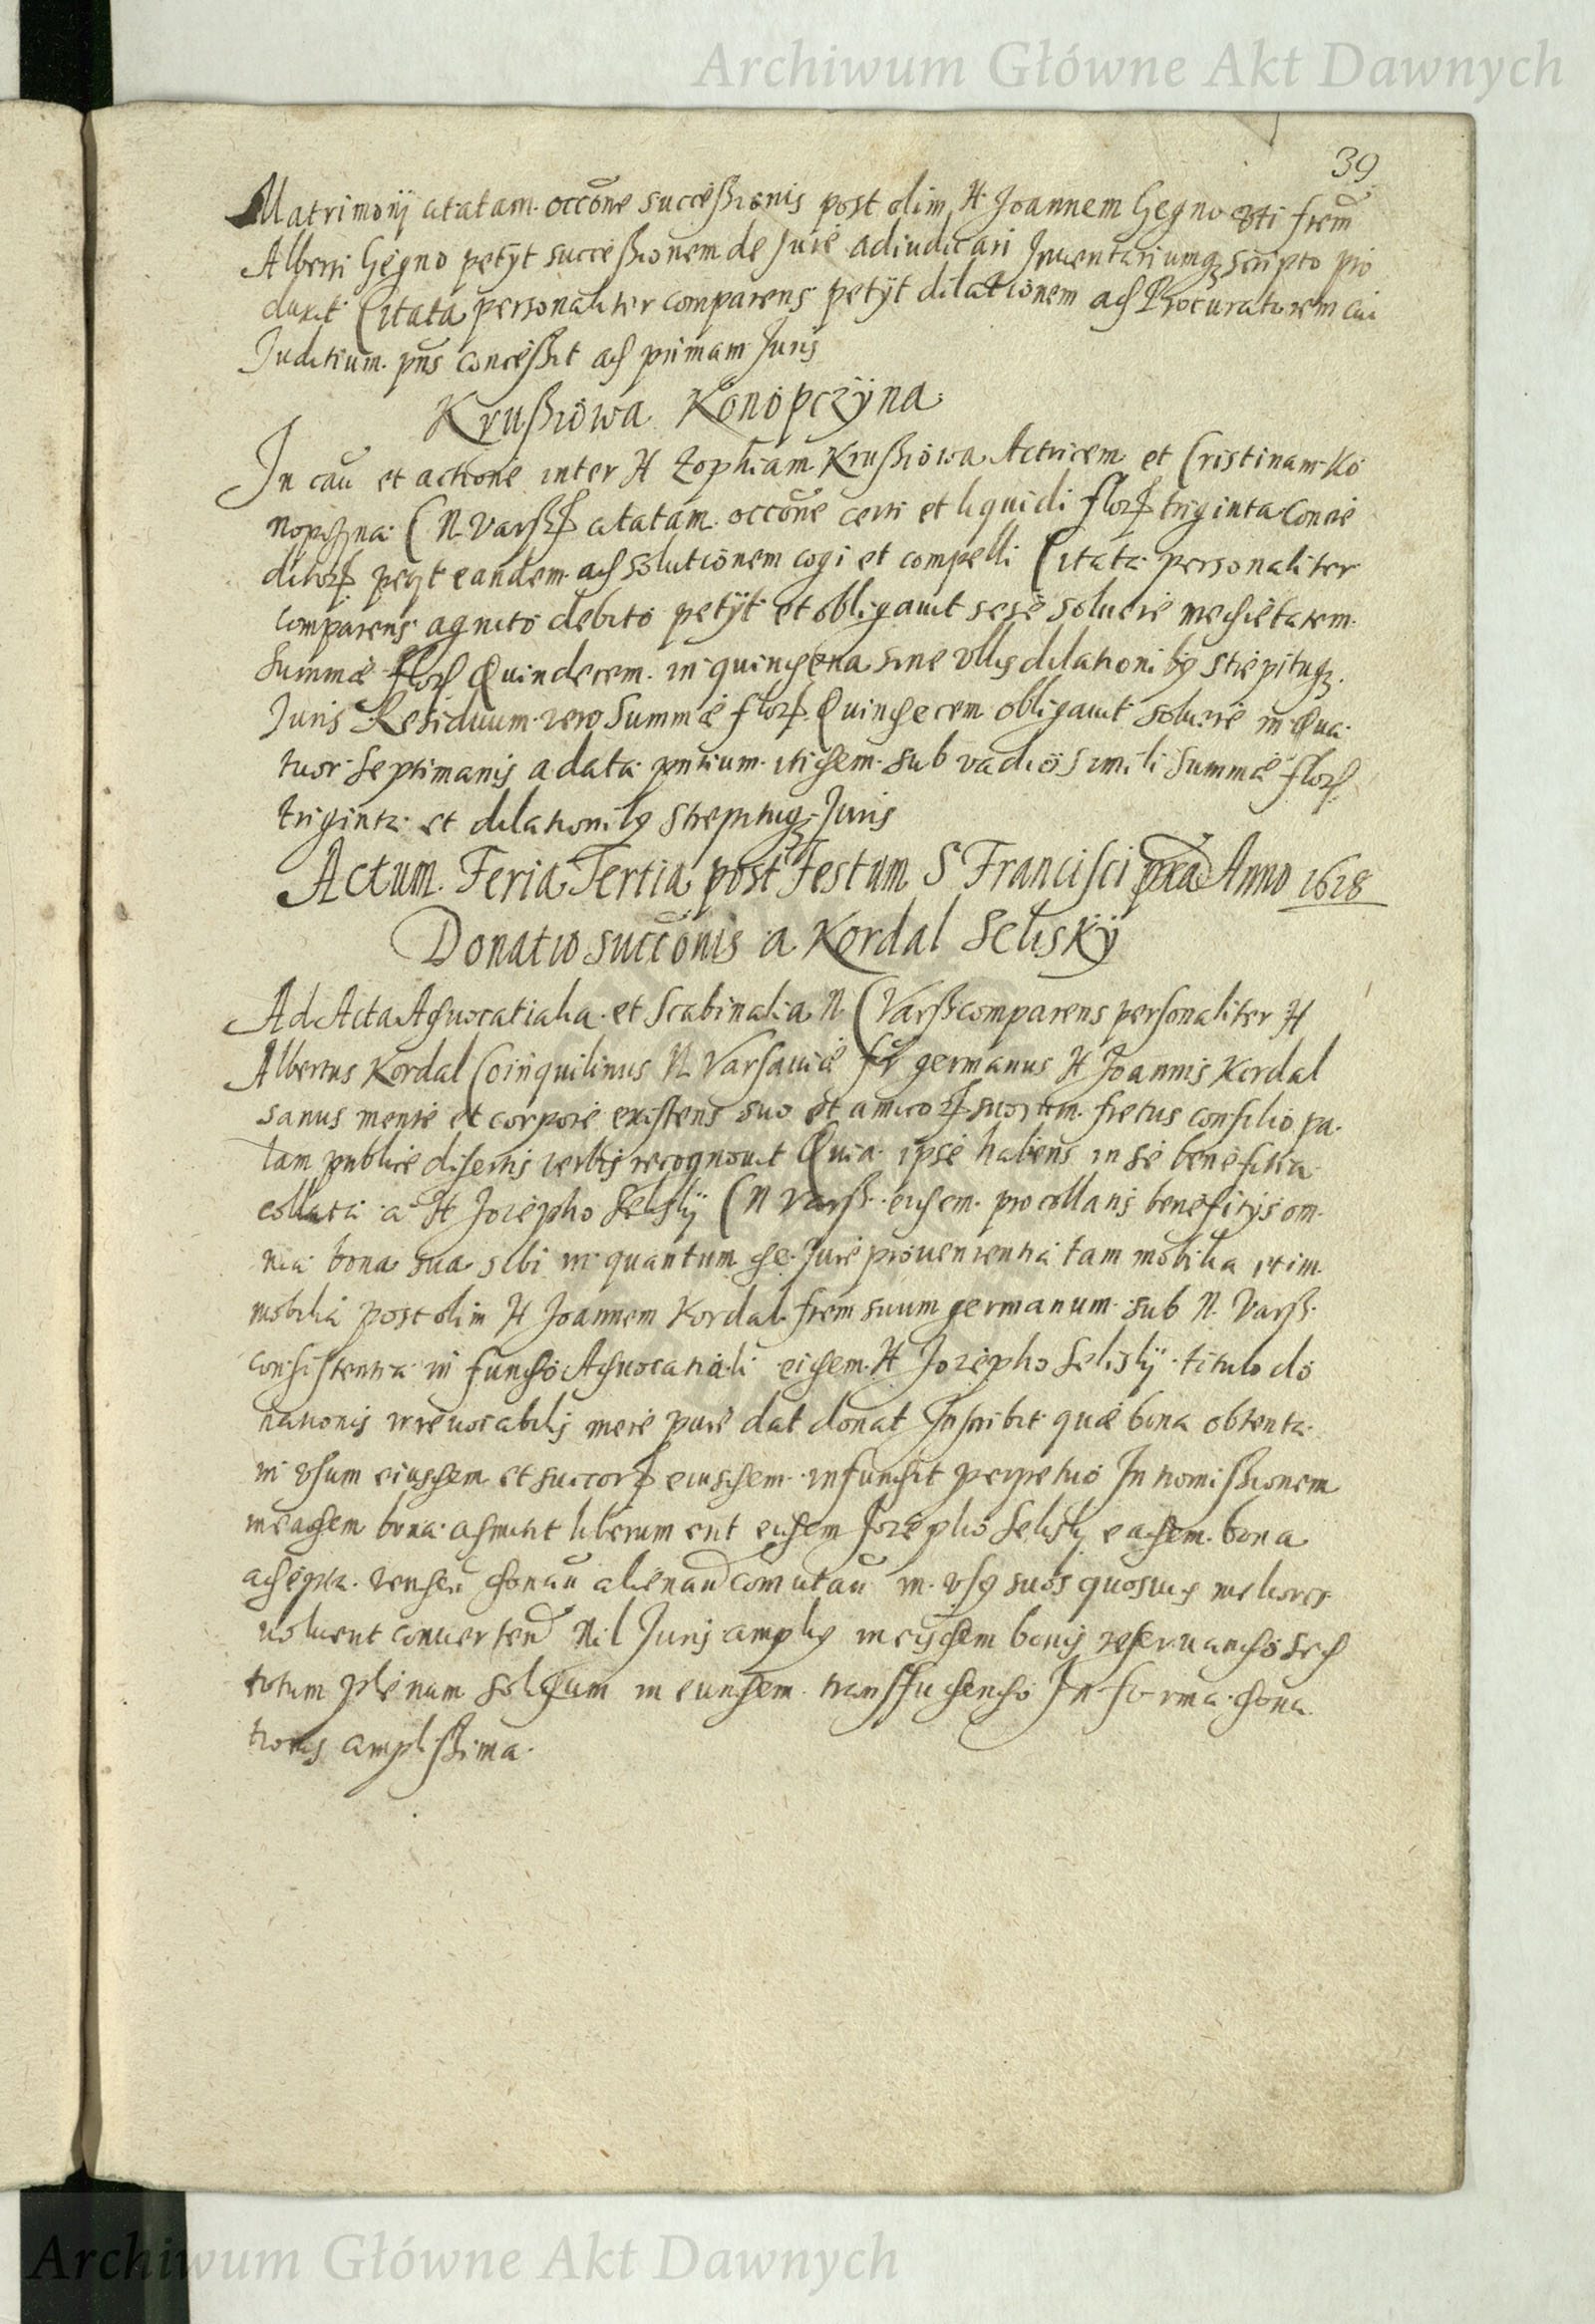 Archiwum Główne Akt Dawnych
39
Matrimonij citatam occōne successionis post olim H Joannem Gegno uti frem
Alberti Gegno petyt successionem de Jure adiudicari Inventariumq scripto pro
duxit Citata personaliter comparens petÿt dilationem ad Procuratorem cui
Juditium pn̄s concessit ad primam Juris
Krussiowa Konopczÿna
In cau et actione inter H Zophiam Krussiowa Actricem et Cristinam Ko
nopczyna C N Varss citatam occōne certi et liquidi flor triginta Concre
ditor petyt eandem ad solutionem cogi et compelli Citata personaliter
comparens agnito debito petÿt et obligavit sese solvere medietatem
Summæ flor Quindecem in quindena sine ullis dilationibq strepituq
Juris Residuum vero Summæ flor Quindecem obligavit solvere in Qua
tuor Septimanis a data pntium itidem sub vadio simili Summæ flor
triginta et dilationibq strepituq Juris
Actum Feria Tertia post Festum S Francisci Anno 1628
Donatio succōnis a Kordal Selisky
Ad Acta Advocatialia et Scabinalia N C Varss comparens personaliter H
Albertus Kordal Coinquilinus N Varsaviæ fr germanus H Joannis Kordal
sanus mente et corpore existens suo et amicor suorum fretus consilio pa
lam publice disertis verbis recognovit Quia ipse habens in se benefitia
collata a H Jozepho Selisky C N Varss eidem pro collatis benefitijs om
nia bona sua sibi in quantum de Jure provenientia tam mobilia et im
mobilia post olim H Joannem Kordal frem suum germanum sub N Varss
consistentia in fundo Advocatiali eidem H Jozepho Selisky titulo do
nationis irrevocabilis mere pure dat donat Inscribit quæ bona obtenta
in usum eiusdem et succor eiusdem infundit perpetuo Intromissionem
in eadem bona admittit liberum erit eidem Jozepho Selisky eadem bona
adepta vendeū donaū alienaū comutaū in usq suos quosvis meliores
voluerit convertend Nil Juris ampliq in eisdem bonis reservando sed
totum plenum solidum in eundem transffudendo In forma dona
tionis amplissima
Archiwum Główne Akt Dawnych